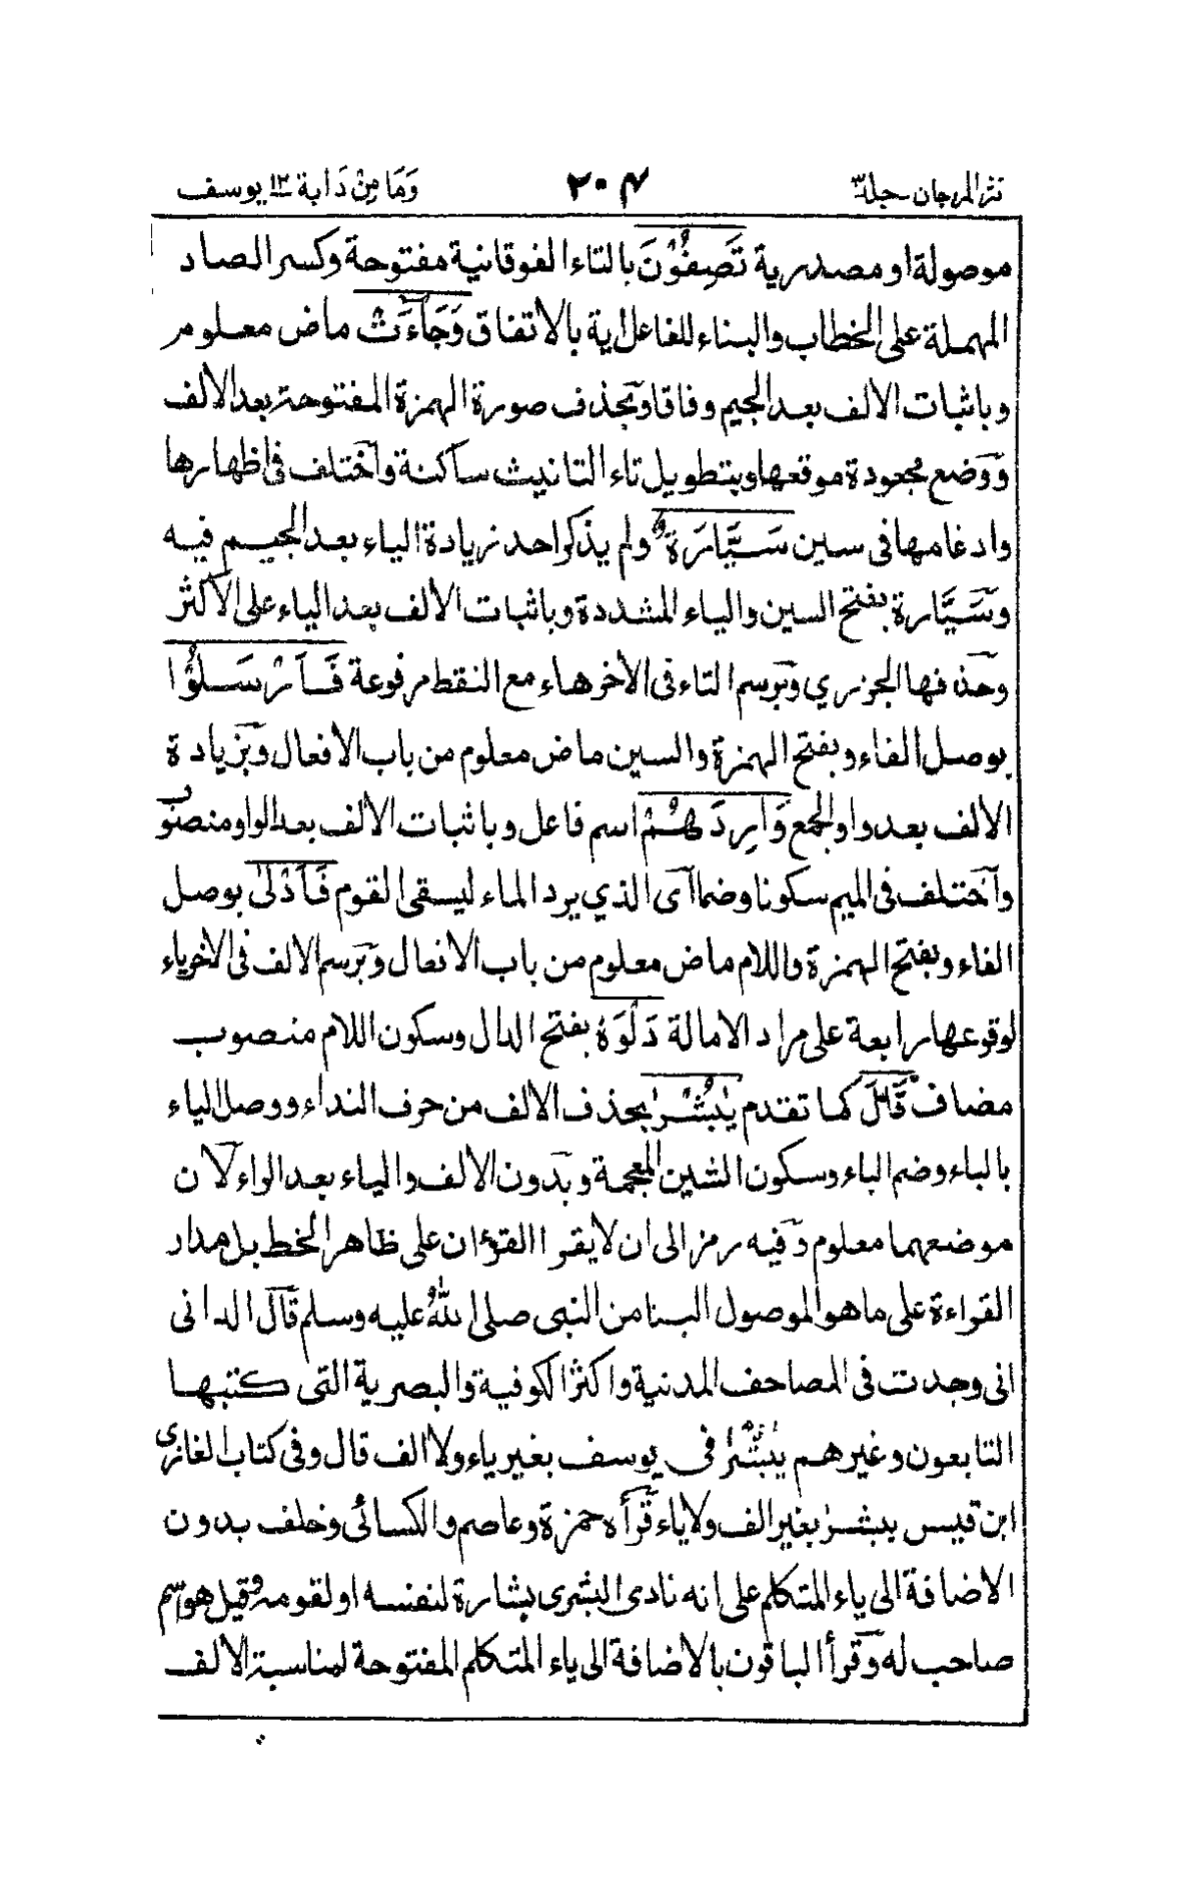 نثر المرجان جلد٣ ٢٠٤ وَمَا مِنْ دَابة ١٢ يوسف
موصولة او مصدرية تَصِفُوْنَ بالتاء الفوقانية مفتوحة وكسر الصاد
المهملة على الخطاب والبناء للفاعل اية بالاتفاق وَجَاءَتْ ماض معلوم
وباثبات الالف بعد الجيم وفاقا وبحذف صورة الهمزة المفتوحة بعد الالف
ووضع مجعودة موقعها وبتطويل تاء التانيث ساكنة واختلف فى اظهارها
وادغامها فى سين سَيَّارَةٌ ولم يذكر احد زيادة الياء بعد الجيم فيه
وسَيَّارة بفتح السين والياء المشددة وباثبات الالف بعد الياء على الاكثر
وحذفها الجزري وبرسم التاء فى الأخر هاء مع النقط مرفوعة فَاَرْسَلُوْا
بوصل الفاء وبفتح الهمزة والسين ماض معلوم من باب الافعال وبزيادة
الالف بعد واو الجمع وَارِدَهُمْ اسم فاعل وباثبات الالف بعد الواو منصوب
واختلف فى الميم سكونا وضما اى الذي يرد الماء ليسقى القوم فَاَدْلٰى بوصل
الفاء وبفتح الهمزة واللام ماض معلوم من باب الافعال وبرسم الالف فى الاخر ياء
لوقوعها رابعة على مراد الامالة دَلْوَهُ بفتح الدال وسكون اللام منصوب
مضاف قَالَ كما تقدم يٰبُشْرٰ بحذف الالف من حرف النداء ووصل الياء
بالباء وضم الباء وسكون الشين المعجمة وبدون الالف والياء بعد الراء لان
موضعهما معلوم وفيه رمز الى ان لا يقرا القرءان على ظاهر الخط بل مدار
القراءة على ما هو الموصول الينا من النبى صلى اللهُ عليه وسلم قال الدانى
انى وجدت فى المصاحف المدنية واكثر الكوفية والبصرية التى كتبها
التابعون وغيرهم يٰبُشْرٰ فى يوسف بغير ياء ولا الف قال وفى كتاب الغازى
ابن قيس يبشرٰ بغير الف ولا ياء قرأه حمزة وعاصم والكسائى وخلف بدون
الاضافة الى ياء المتكلم على انه نادى البشرى بشارة لنفسه او لقومه وقيل هو اسم
صاحب له وقرأ الباقون بالاضافة الى ياء المتكلم المفتوحة لمناسبة الالف